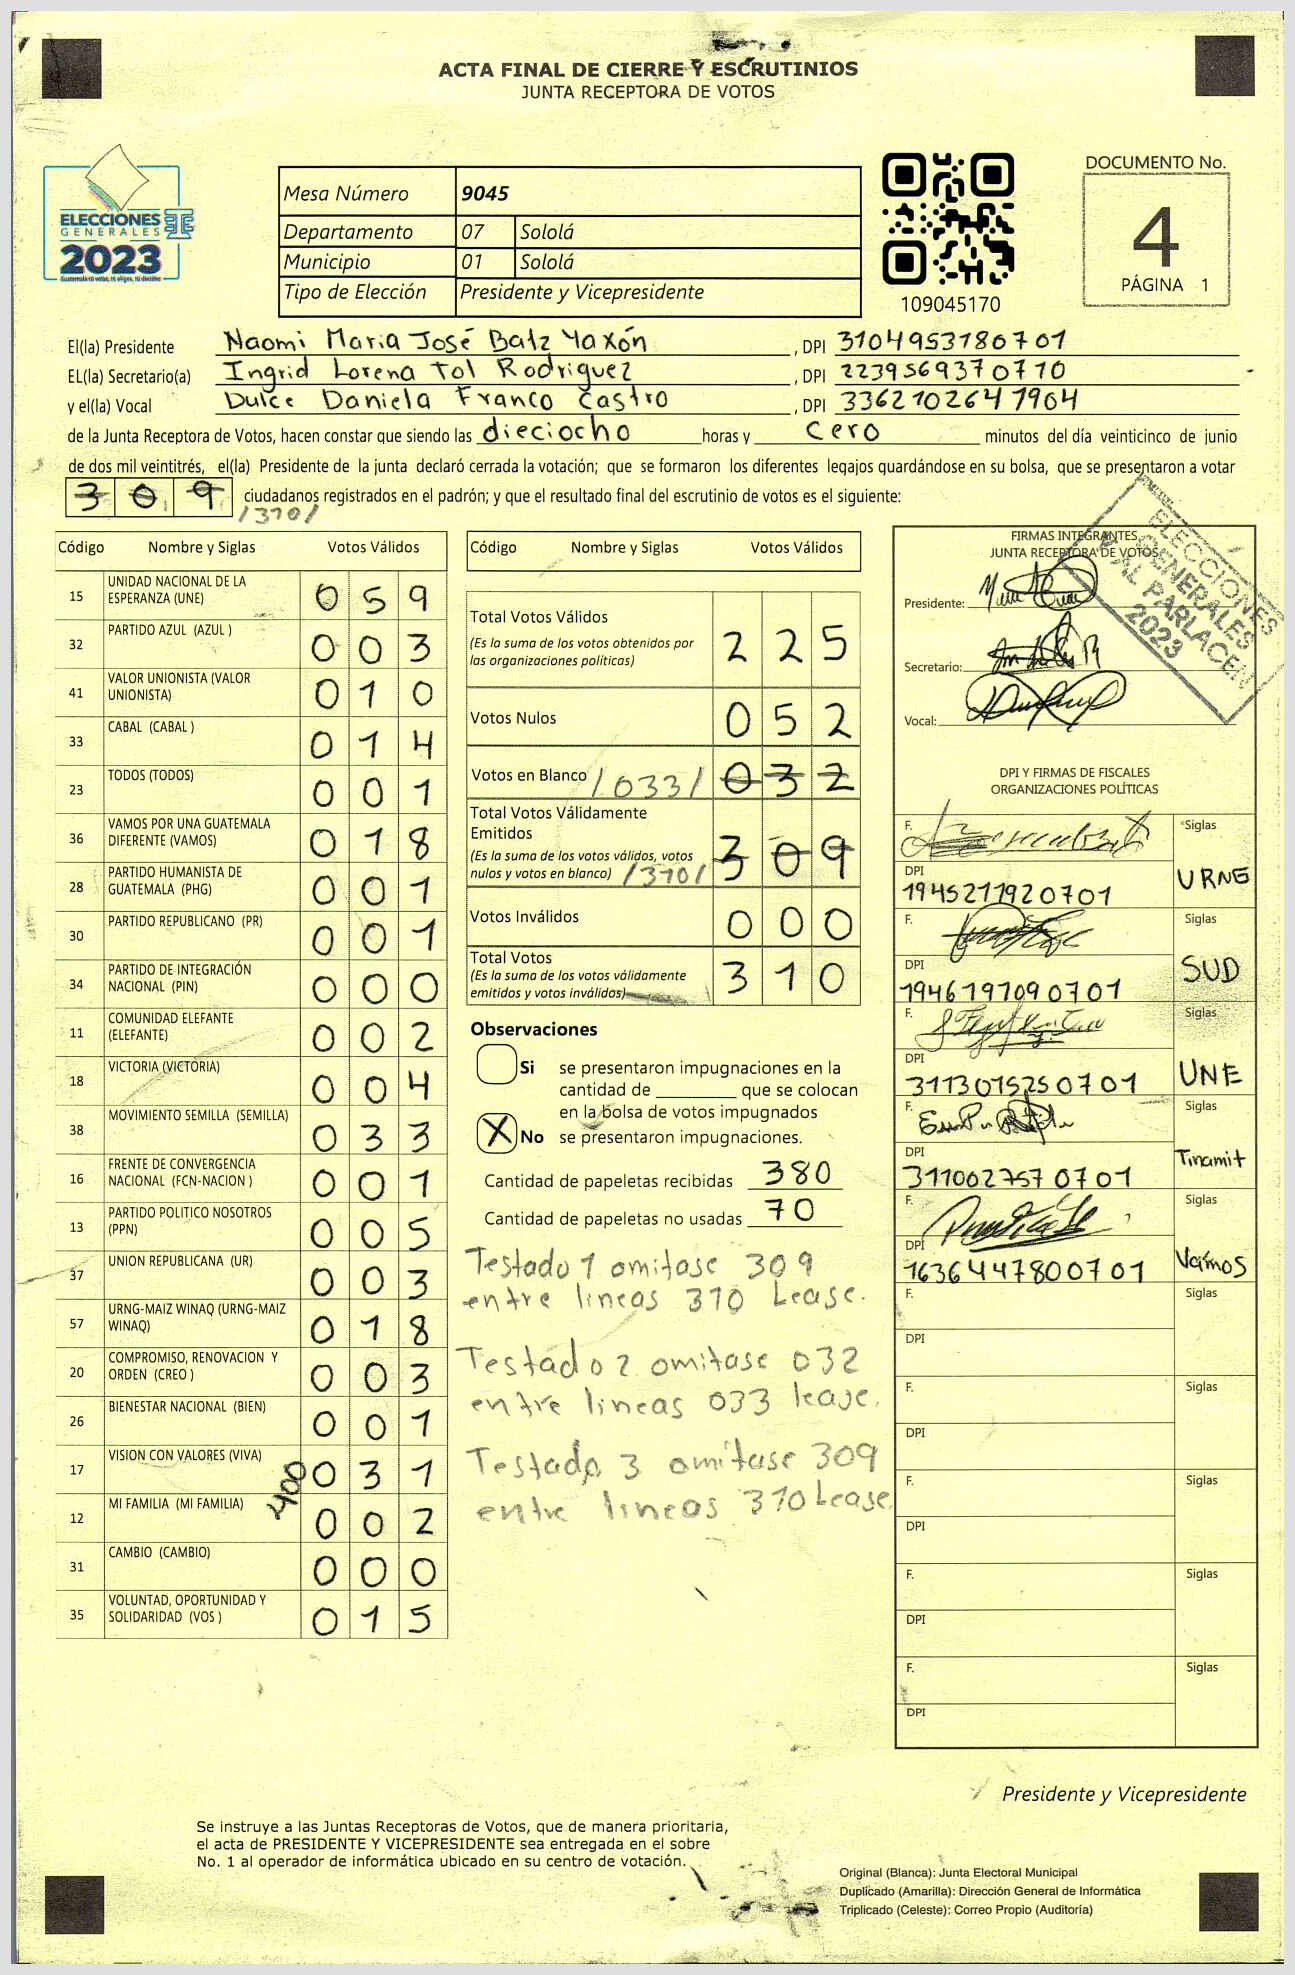 ACTA FINAL DE CIERRE Y ESCRUTINIOS
JUNTA RECEPTORA DE VOTOS
ELECCIONES
GENERALES
2023
Guatemala tú votas, tú eliges, tú decides
Mesa Número 9045
Departamento 07 Sololá
Municipio 01 Sololá
Tipo de Elección Presidente y Vicepresidente
109045170
DOCUMENTO No.
4
PÁGINA 1
El(la) Presidente Naomi Maria José Batz Yaxón , DPI 3104953180701
EL(la) Secretario(a) Ingrid Lorena Tol Rodriguez , DPI 2239569370710
y el(la) Vocal Dulce Daniela Franco Castro , DPI 3362102641904
de la Junta Receptora de Votos, hacen constar que siendo las dieciocho horas y cero minutos del día veinticinco de junio
de dos mil veintitrés, el(la) Presidente de la junta declaró cerrada la votación; que se formaron los diferentes legajos quardándose en su bolsa, que se presentaron a votar
309 ciudadanos registrados en el padrón; y que el resultado final del escrutinio de votos es el siguiente:
/310/
Código Nombre y Siglas Votos Válidos
15 UNIDAD NACIONAL DE LA ESPERANZA (UNE) 059
32 PARTIDO AZUL (AZUL ) 003
41 VALOR UNIONISTA (VALOR UNIONISTA) 010
33 CABAL (CABAL ) 014
23 TODOS (TODOS) 001
36 VAMOS POR UNA GUATEMALA DIFERENTE (VAMOS) 018
28 PARTIDO HUMANISTA DE GUATEMALA (PHG) 001
30 PARTIDO REPUBLICANO (PR) 001
34 PARTIDO DE INTEGRACIÓN NACIONAL (PIN) 000
11 COMUNIDAD ELEFANTE (ELEFANTE) 002
18 VICTORIA (VICTORIA) 004
38 MOVIMIENTO SEMILLA (SEMILLA) 033
16 FRENTE DE CONVERGENCIA NACIONAL (FCN-NACION ) 001
13 PARTIDO POLITICO NOSOTROS (PPN) 005
37 UNION REPUBLICANA (UR) 003
57 URNG-MAIZ WINAQ (URNG-MAIZ WINAQ) 018
20 COMPROMISO, RENOVACION Y ORDEN (CREO ) 003
26 BIENESTAR NACIONAL (BIEN) 001
17 VISION CON VALORES (VIVA) 031
400
12 MI FAMILIA (MI FAMILIA) 002
31 CAMBIO (CAMBIO) 000
35 VOLUNTAD, OPORTUNIDAD Y SOLIDARIDAD (VOS ) 015
Código Nombre y Siglas Votos Válidos
Total Votos Válidos 225
(Es la suma de los votos obtenidos por
las organizaciones políticas)
Votos Nulos 052
Votos en Blanco /033/ 032
Total Votos Válidamente
Emitidos 309
(Es la suma de los votos válidos, votos
nulos y votos en blanco) /310/
Votos Inválidos 000
Total Votos 310
(Es la suma de los votos válidamente
emitidos y votos inválidos)
Observaciones
Si se presentaron impugnaciones en la
cantidad de ________ que se colocan
en la bolsa de votos impugnados
X No se presentaron impugnaciones.
Cantidad de papeletas recibidas 380
Cantidad de papeletas no usadas 70
Testado 1 omitase 309
entre lineas 310 Lease.
Testado 2 omitase 032
entre lineas 033 lease.
Testado 3 omitase 309
entre lineas 310 Lease.
FIRMAS INTEGRANTES
JUNTA RECEPTORA DE VOTOS
Presidente:
Secretario:
Vocal:
ELECCIONES
GENERALES
Y AL PARLACEN
2023
DPI Y FIRMAS DE FISCALES
ORGANIZACIONES POLÍTICAS
F. Siglas
DPI
1945211920701 URNG
F. Siglas
DPI
1946197090701 SUD
F. Siglas
DPI
3113015250701 UNE
F. Siglas
DPI
3110027570701 Tinamit
F. Siglas
DPI
1636447800701 Vamos
F. Siglas
DPI
F. Siglas
DPI
F. Siglas
DPI
F. Siglas
DPI
F. Siglas
DPI
Presidente y Vicepresidente
Se instruye a las Juntas Receptoras de Votos, que de manera prioritaria,
el acta de PRESIDENTE Y VICEPRESIDENTE sea entregada en el sobre
No. 1 al operador de informática ubicado en su centro de votación.
Original (Blanca): Junta Electoral Municipal
Duplicado (Amarilla): Dirección General de Informática
Triplicado (Celeste): Correo Propio (Auditoría)